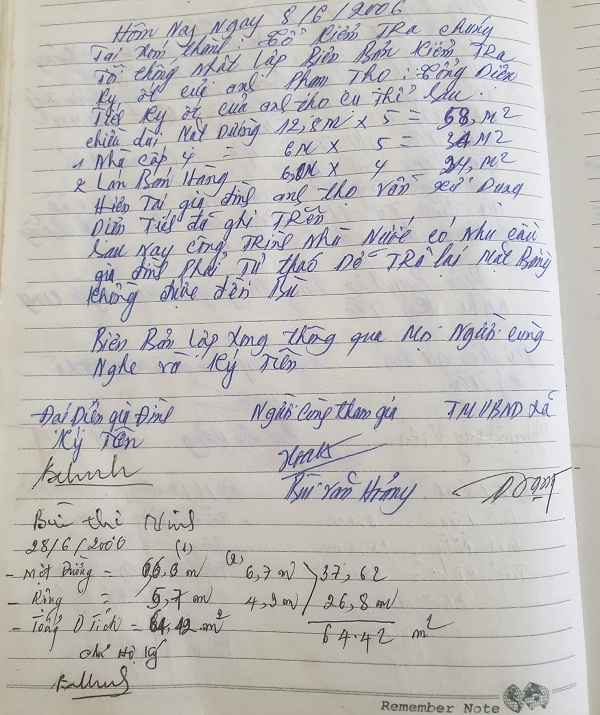 Hôm Nay Ngày 8/6/2006
Tại xóm thành: Tổ Kiểm Tra chúng
Tôi thống Nhất Lập Biên Bản Kiểm TRa
Ky ốt của anh Phạm Thọ: Tổng Diện
Tích Ky ốt của anh thọ Cụ Thể Sau.
chiều dài Mặt Đường 12,8m x 5 = 58,m2
1 Nhà Cấp 4 = 6m x 5 = 34M2
2 Lán Bán Hàng 6,0m x 4 24,m2
Hiện Tại gia đình anh thọ Vẫn xử Dụng
Diện Tích đã ghi TRên
Sau Nay công TRình Nhà Nước có Nhu cầu
gia đình Phải Tự tháo Dỡ TRả lại Mặt Bằng
không được đền Bù
Biên Bản Lập Xong thông qua Mọi Người cùng
Nghe và Ký Tên
Đại Diện gia Đình Người Cùng tham gia TM UBND Xã
Ký Tên
Bùi Văn Hưởng
Bùi thị Ninh
28/6/2006 (1) (2)
- Mặt Đường = 6,6m 6,7m 37,62
- Rộng = 5,7m 4,2m 26,8m
- Tổng D Tích = 64,42 m2 64.42 m2
chủ Hộ ký
Remember Note